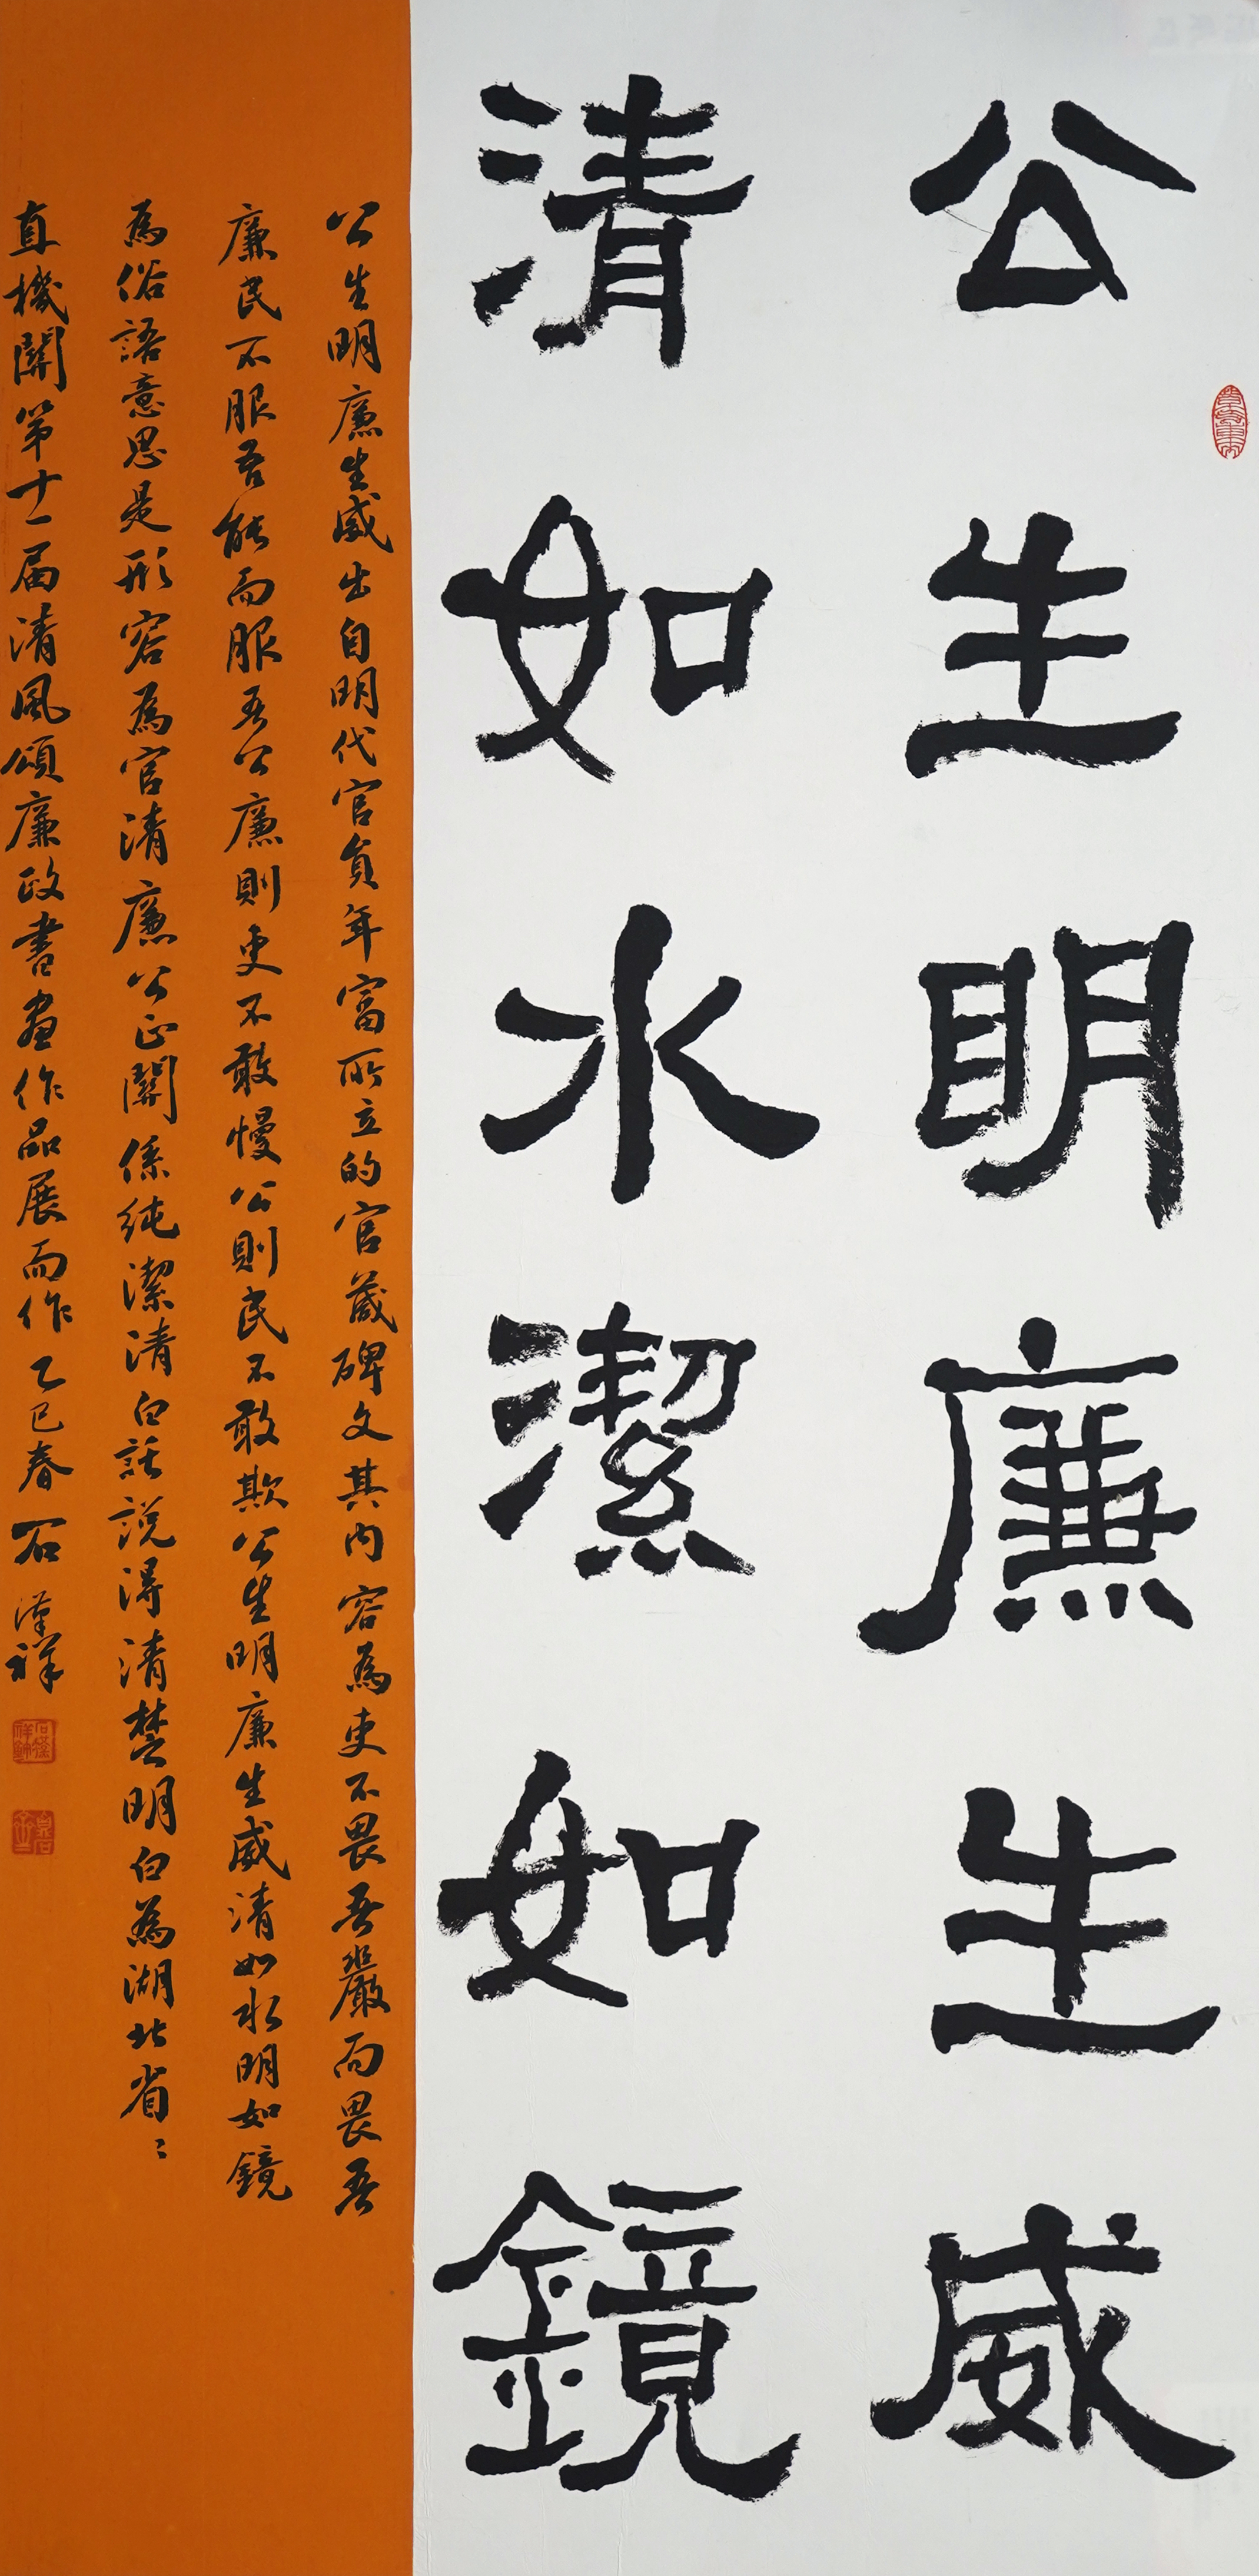 公生明廉生威
清如水潔如鏡
公生明廉生威出自明代官員年富所立的官箴碑文其内容為吏不畏吾嚴而畏吾
廉民不服吾能而服吾公廉則吏不敢慢公則民不敢欺公生明廉生威清如水明如鏡
為俗語意思是形容為官清廉公正關係純潔清白話説得清楚明白為湖北省〻
直機關第十一届清風頌廉政書畫作品展而作乙巳春石漢祥